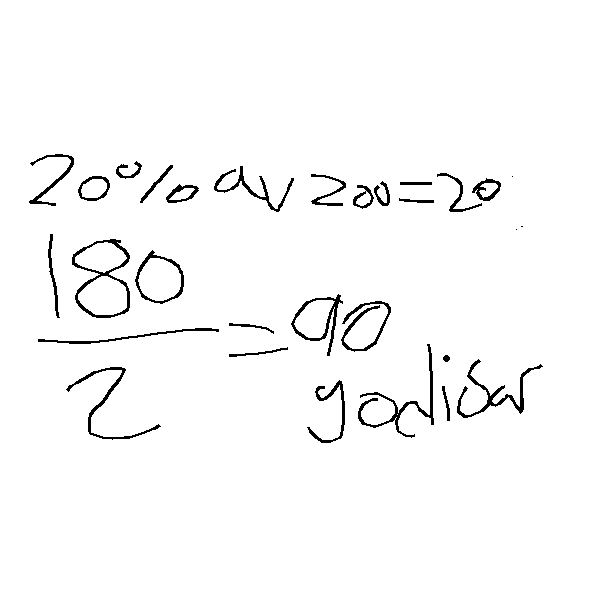 20% av 200=20
180/2 = 90
godisar